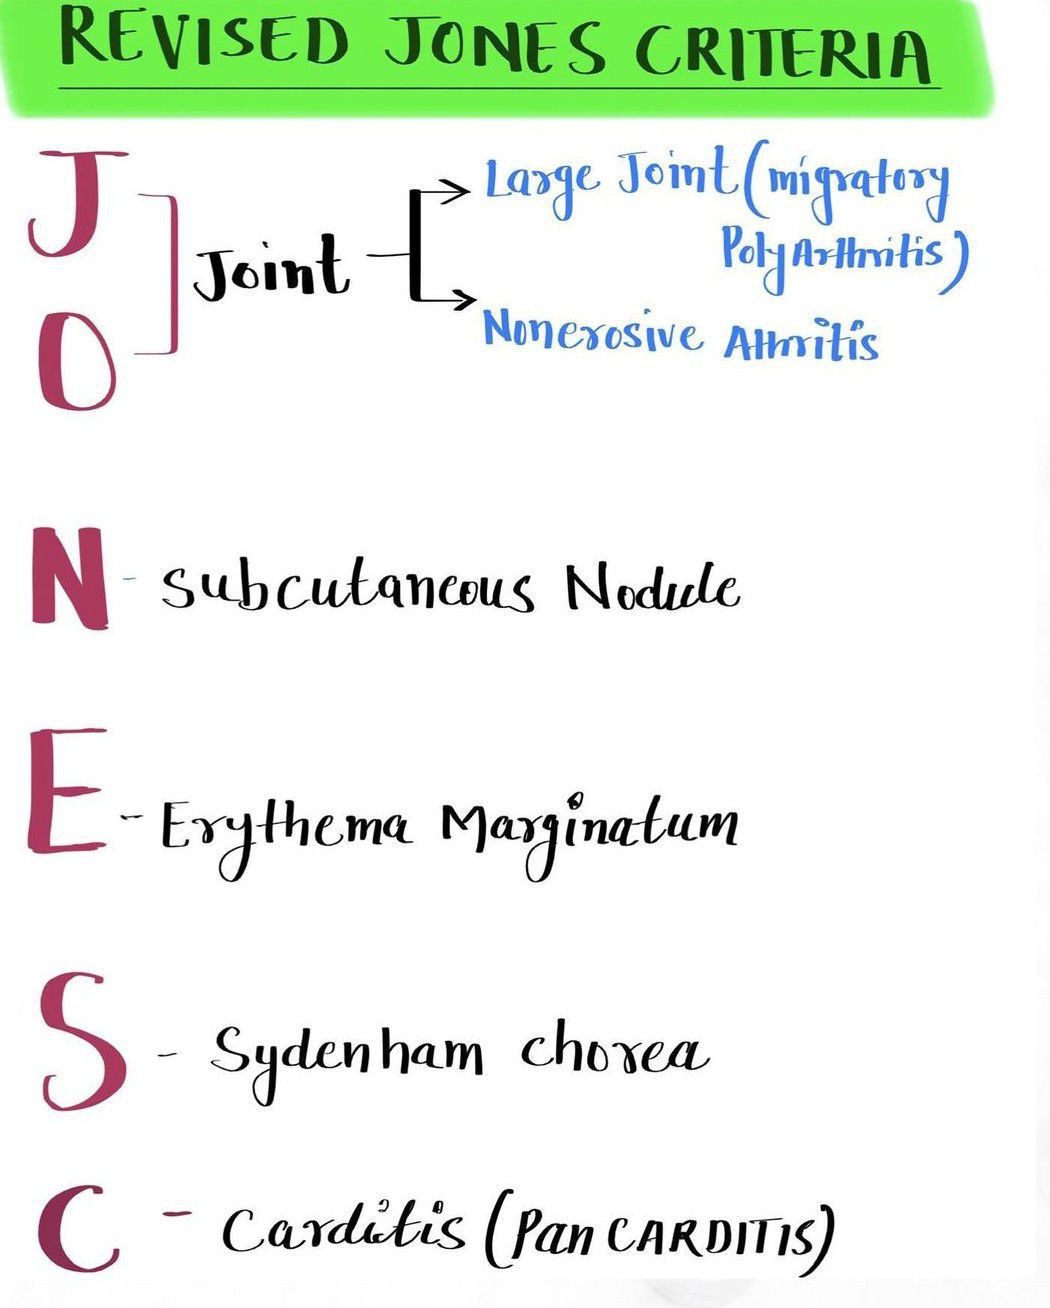 REVISED JONES CRITERIA
J
Joint
Large Joint (migratory
PolyArthritis)
Nonerosive Athritis
O
N - Subcutaneous Nodule
E - Erythema Marginatum
S - Sydenham chorea
C - Carditis (Pan CARDITIS)